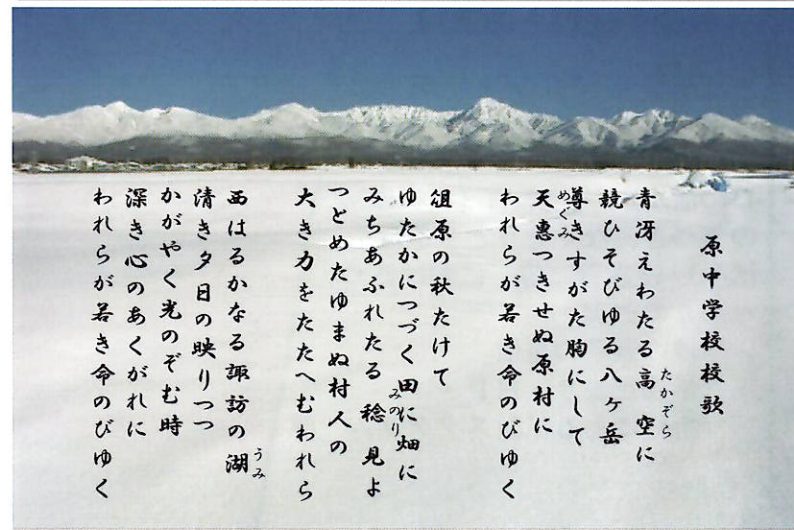 原中学校校歌
青冴えわたる高空に
たかぞら
競ひそびゆる八ヶ岳
尊きすがた胸にして
天惠つきせぬ原村に
めぐみ
われらが若き命のびゆく
俎原の秋たけて
ゆたかにつづく田に畑に
みちあふれたる稔見よ
みのり
つとめたゆまぬ村人の
大き力をたたへむわれら
西はるかなる諏訪の湖
うみ
清き夕日の映りつつ
かがやく光のぞむ時
深き心のあくがれに
われらが若き命のびゆく